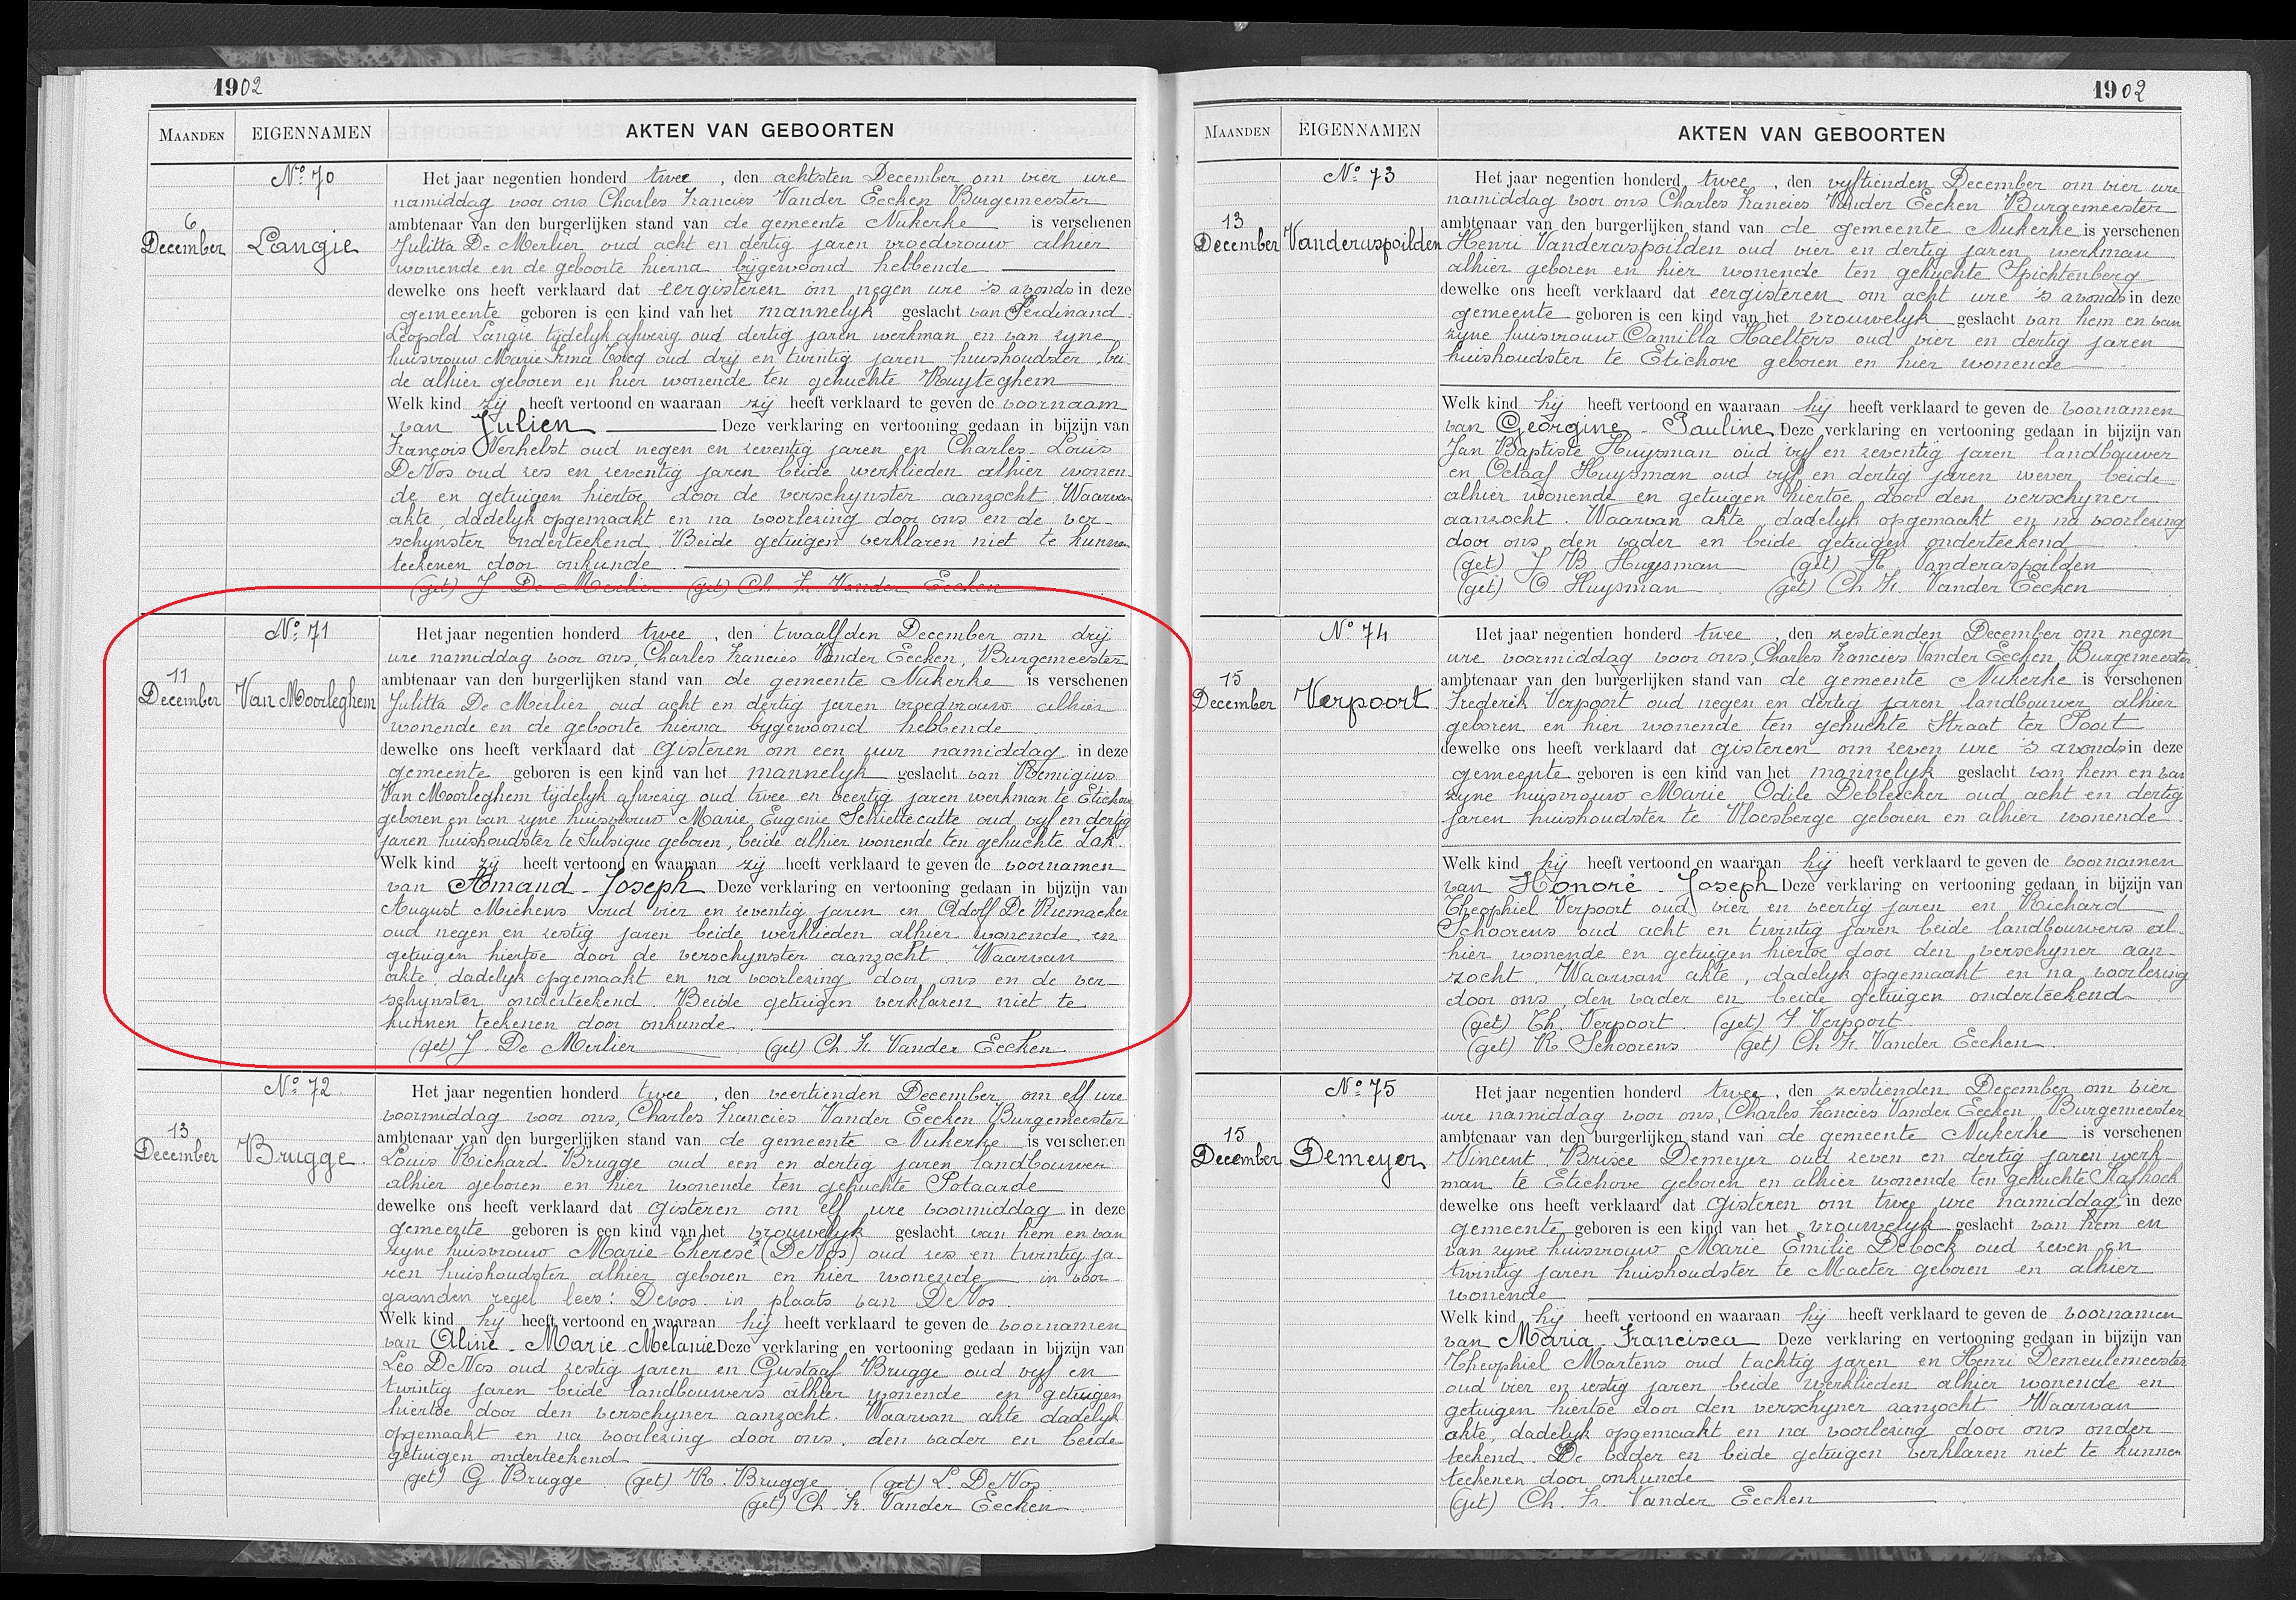 1902
MAANDEN EIGENNAMEN AKTEN VAN GEBOORTEN
No 70
6
December
Langie
Het jaar negentien honderd twee, den achtsten December om vier ure
namiddag voor ons Charles Francies Vander Eecken Burgemeester
ambtenaar van den burgerlijken stand van de gemeente Nukerke is verschenen
Julitta De Merlier oud acht en dertig jaren vroedvrouw alhier
wonende en de geboorte hierna bijgewoond hebbende
dewelke ons heeft verklaard dat eergisteren om negen ure 's avonds in deze
gemeente geboren is een kind van het mannelyk geslacht van Ferdinand
Leopold Langie tijdelyk afwezig oud dertig jaren werkman en van zyne
huisvrouw Marie Irma Tocq oud drij en twintig jaren huishoudster bei-
de alhier geboren en hier wonende ten gehuchte Ruyteghem
Welk kind zij heeft vertoond en waaraan zij heeft verklaard te geven de voornaam
van Julien Deze verklaring en vertooning gedaan in bijzijn van
François Verhelst oud negen en zeventig jaren en Charles Louis
DeVos oud zes en zeventig jaren beide werklieden alhier wonen-
de en getuigen hiertoe door de verschynster aanzocht. Waarvan
akte, dadelyk opgemaakt en na voorlezing door ons en de ver-
schynster onderteekend. Beide getuigen verklaren niet te kunnen
teekenen door onkunde.
(get) J. De Merlier (get) Ch. Fr. Vander Eecken
No 71
11
December
Van Moorleghem
Het jaar negentien honderd twee, den twaalfden December om drij
ure namiddag voor ons, Charles Francies Vander Eecken, Burgemeester
ambtenaar van den burgerlijken stand van de gemeente Nukerke is verschenen
Julitta De Merlier oud acht en dertig jaren vroedvrouw alhier
wonende en de geboorte hierna bygewoond hebbende
dewelke ons heeft verklaard dat gisteren om een uur namiddag in deze
gemeente geboren is een kind van het mannelyk geslacht van Remigius
Van Moorleghem tijdelyk afwezig oud twee en veertig jaren werkman te Etichove
geboren en van zyne huisvrouw Marie Eugenie Schiettecatte oud vyf en dertig
jaren huishoudster te Sulsique geboren, beide alhier wonende ten gehuchte Zak.
Welk kind zij heeft vertoond en waaraan zij heeft verklaard te geven de voornamen
van Amand - Joseph Deze verklaring en vertooning gedaan in bijzijn van
August Michens oud vier en zeventig jaren en Adolf De Riemacker
oud negen en zestig jaren beide werklieden alhier wonende en
getuigen hiertoe door de verschynster aanzocht. Waarvan
akte, dadelyk opgemaakt en na voorlezing door ons en de ver-
schynster onderteekend. Beide getuigen verklaren niet te
kunnen teekenen door onkunde.
(get) J. De Merlier (get) Ch. Fr. Vander Eecken
No 72
13
December
Brugge
Het jaar negentien honderd twee, den veertienden December om elf ure
voormiddag voor ons, Charles Francies Vander Eecken Burgemeester
ambtenaar van den burgerlijken stand van de gemeente Nukerke is verschenen
Louis Richard Brugge oud een en dertig jaren landbouwer
alhier geboren en hier wonende ten gehuchte Potaarde
dewelke ons heeft verklaard dat gisteren om elf ure voormiddag in deze
gemeente geboren is een kind van het vrouwelyk geslacht van hem en van
zyne huisvrouw Marie-Therese (DeVos) oud zes en twintig ja-
ren huishoudster alhier geboren en hier wonende in voor-
gaanden regel lees: Devos in plaats van DeVos.
Welk kind hij heeft vertoond en waaraan hij heeft verklaard te geven de voornamen
van Aline - Marie Melanie Deze verklaring en vertooning gedaan in bijzijn van
Leo DeVos oud zestig jaren en Gustaaf Brugge oud vyf en
twintig jaren beide landbouwers alhier wonende en getuigen
hiertoe door den verschyner aanzocht. Waarvan akte dadelyk
opgemaakt en na voorlezing door ons, den vader en beide
getuigen onderteekend
(get) G Brugge (get) R. Brugge (get) L. DeVos
(get) Ch. Fr. Vander Eecken
1902
MAANDEN EIGENNAMEN AKTEN VAN GEBOORTEN
No 73
13
December
Vanderaspoilden
Het jaar negentien honderd twee, den vyftienden December om vier ure
namiddag voor ons Charles Francies Vander Eecken Burgemeester
ambtenaar van den burgerlijken stand van de gemeente Nukerke is verschenen
Henri Vanderaspoilden oud vier en dertig jaren werkman
alhier geboren en hier wonende ten gehuchte Spichtenberg
dewelke ons heeft verklaard dat eergisteren om acht ure 's avonds in deze
gemeente geboren is een kind van het vrouwelyk geslacht van hem en van
zyne huisvrouw Camilla Haelters oud vier en dertig jaren
huishoudster te Etichove geboren en hier wonende
Welk kind hij heeft vertoond en waaraan hij heeft verklaard te geven de voornamen
van Georgine - Pauline Deze verklaring en vertooning gedaan in bijzijn van
Jan Baptiste Huysman oud vyf en zeventig jaren landbouwer
en Octaaf Huysman oud vyf en dertig jaren wever beide
alhier wonende en getuigen hiertoe door den verschyner
aanzocht. Waarvan akte, dadelyk opgemaakt en na voorlezing
door ons, den vader en beide getuigen onderteekend
(get) J B Huysman (get) H. Vanderaspoilden
(get) O Huysman (get) Ch Fr. Vander Eecken
No 74
15
December
Verpoort
Het jaar negentien honderd twee, den zestienden December om negen
ure voormiddag voor ons, Charles Francies Vander Eecken Burgemeester
ambtenaar van den burgerlijken stand van de gemeente Nukerke is verschenen
Frederik Verpoort oud negen en dertig jaren landbouwer alhier
geboren en hier wonende ten gehuchte Straat ter Poort
dewelke ons heeft verklaard dat gisteren om zeven ure 's avonds in deze
gemeente geboren is een kind van het mannelyk geslacht van hem en van
zyne huisvrouw Marie Odile Debleecker oud acht en dertig
jaren huishoudster te Vloesberge geboren en alhier wonende.
Welk kind hij heeft vertoond en waaraan hij heeft verklaard te geven de voornamen
van Honoré - Joseph Deze verklaring en vertooning gedaan in bijzijn van
Theophiel Verpoort oud vier en veertig jaren en Richard
Schoorens oud acht en twintig jaren beide landbouwers al-
hier wonende en getuigen hiertoe door den verschyner aan-
zocht. Waarvan akte, dadelyk opgemaakt en na voorlezing
door ons, den vader en beide getuigen onderteekend
(get) Th. Verpoort. (get) F. Verpoort
(get) R. Schoorens (get) Ch Fr. Vander Eecken.
No 75
15
December
Demeyer
Het jaar negentien honderd twee, den zestienden December om vier
ure namiddag voor ons, Charles Francies Vander Eecken Burgemeester
ambtenaar van den burgerlijken stand van de gemeente Nukerke is verschenen
Vincent Brisee Demeyer oud zeven en dertig jaren werk-
man te Etichove geboren en alhier wonende ten gehuchte Kafhoek
dewelke ons heeft verklaard dat gisteren om twee ure namiddag in deze
gemeente geboren is een kind van het vrouwelyk geslacht van hem en
van zyne huisvrouw Marie Emilie Debock oud zeven en
twintig jaren huishoudster te Maeter geboren en alhier
wonende
Welk kind hij heeft vertoond en waaraan hij heeft verklaard te geven de voornamen
van Maria - Francisca Deze verklaring en vertooning gedaan in bijzijn van
Theophiel Martens oud tachtig jaren en Henri Demeulemeester
oud vier en zestig jaren beide werklieden alhier wonende en
getuigen hiertoe door den verschyner aanzocht. Waarvan
akte, dadelyk opgemaakt en na voorlezing door ons onder-
teekend. De vader en beide getuigen verklaren niet te kunnen
teekenen door onkunde
(get) Ch. Fr. Vander Eecken